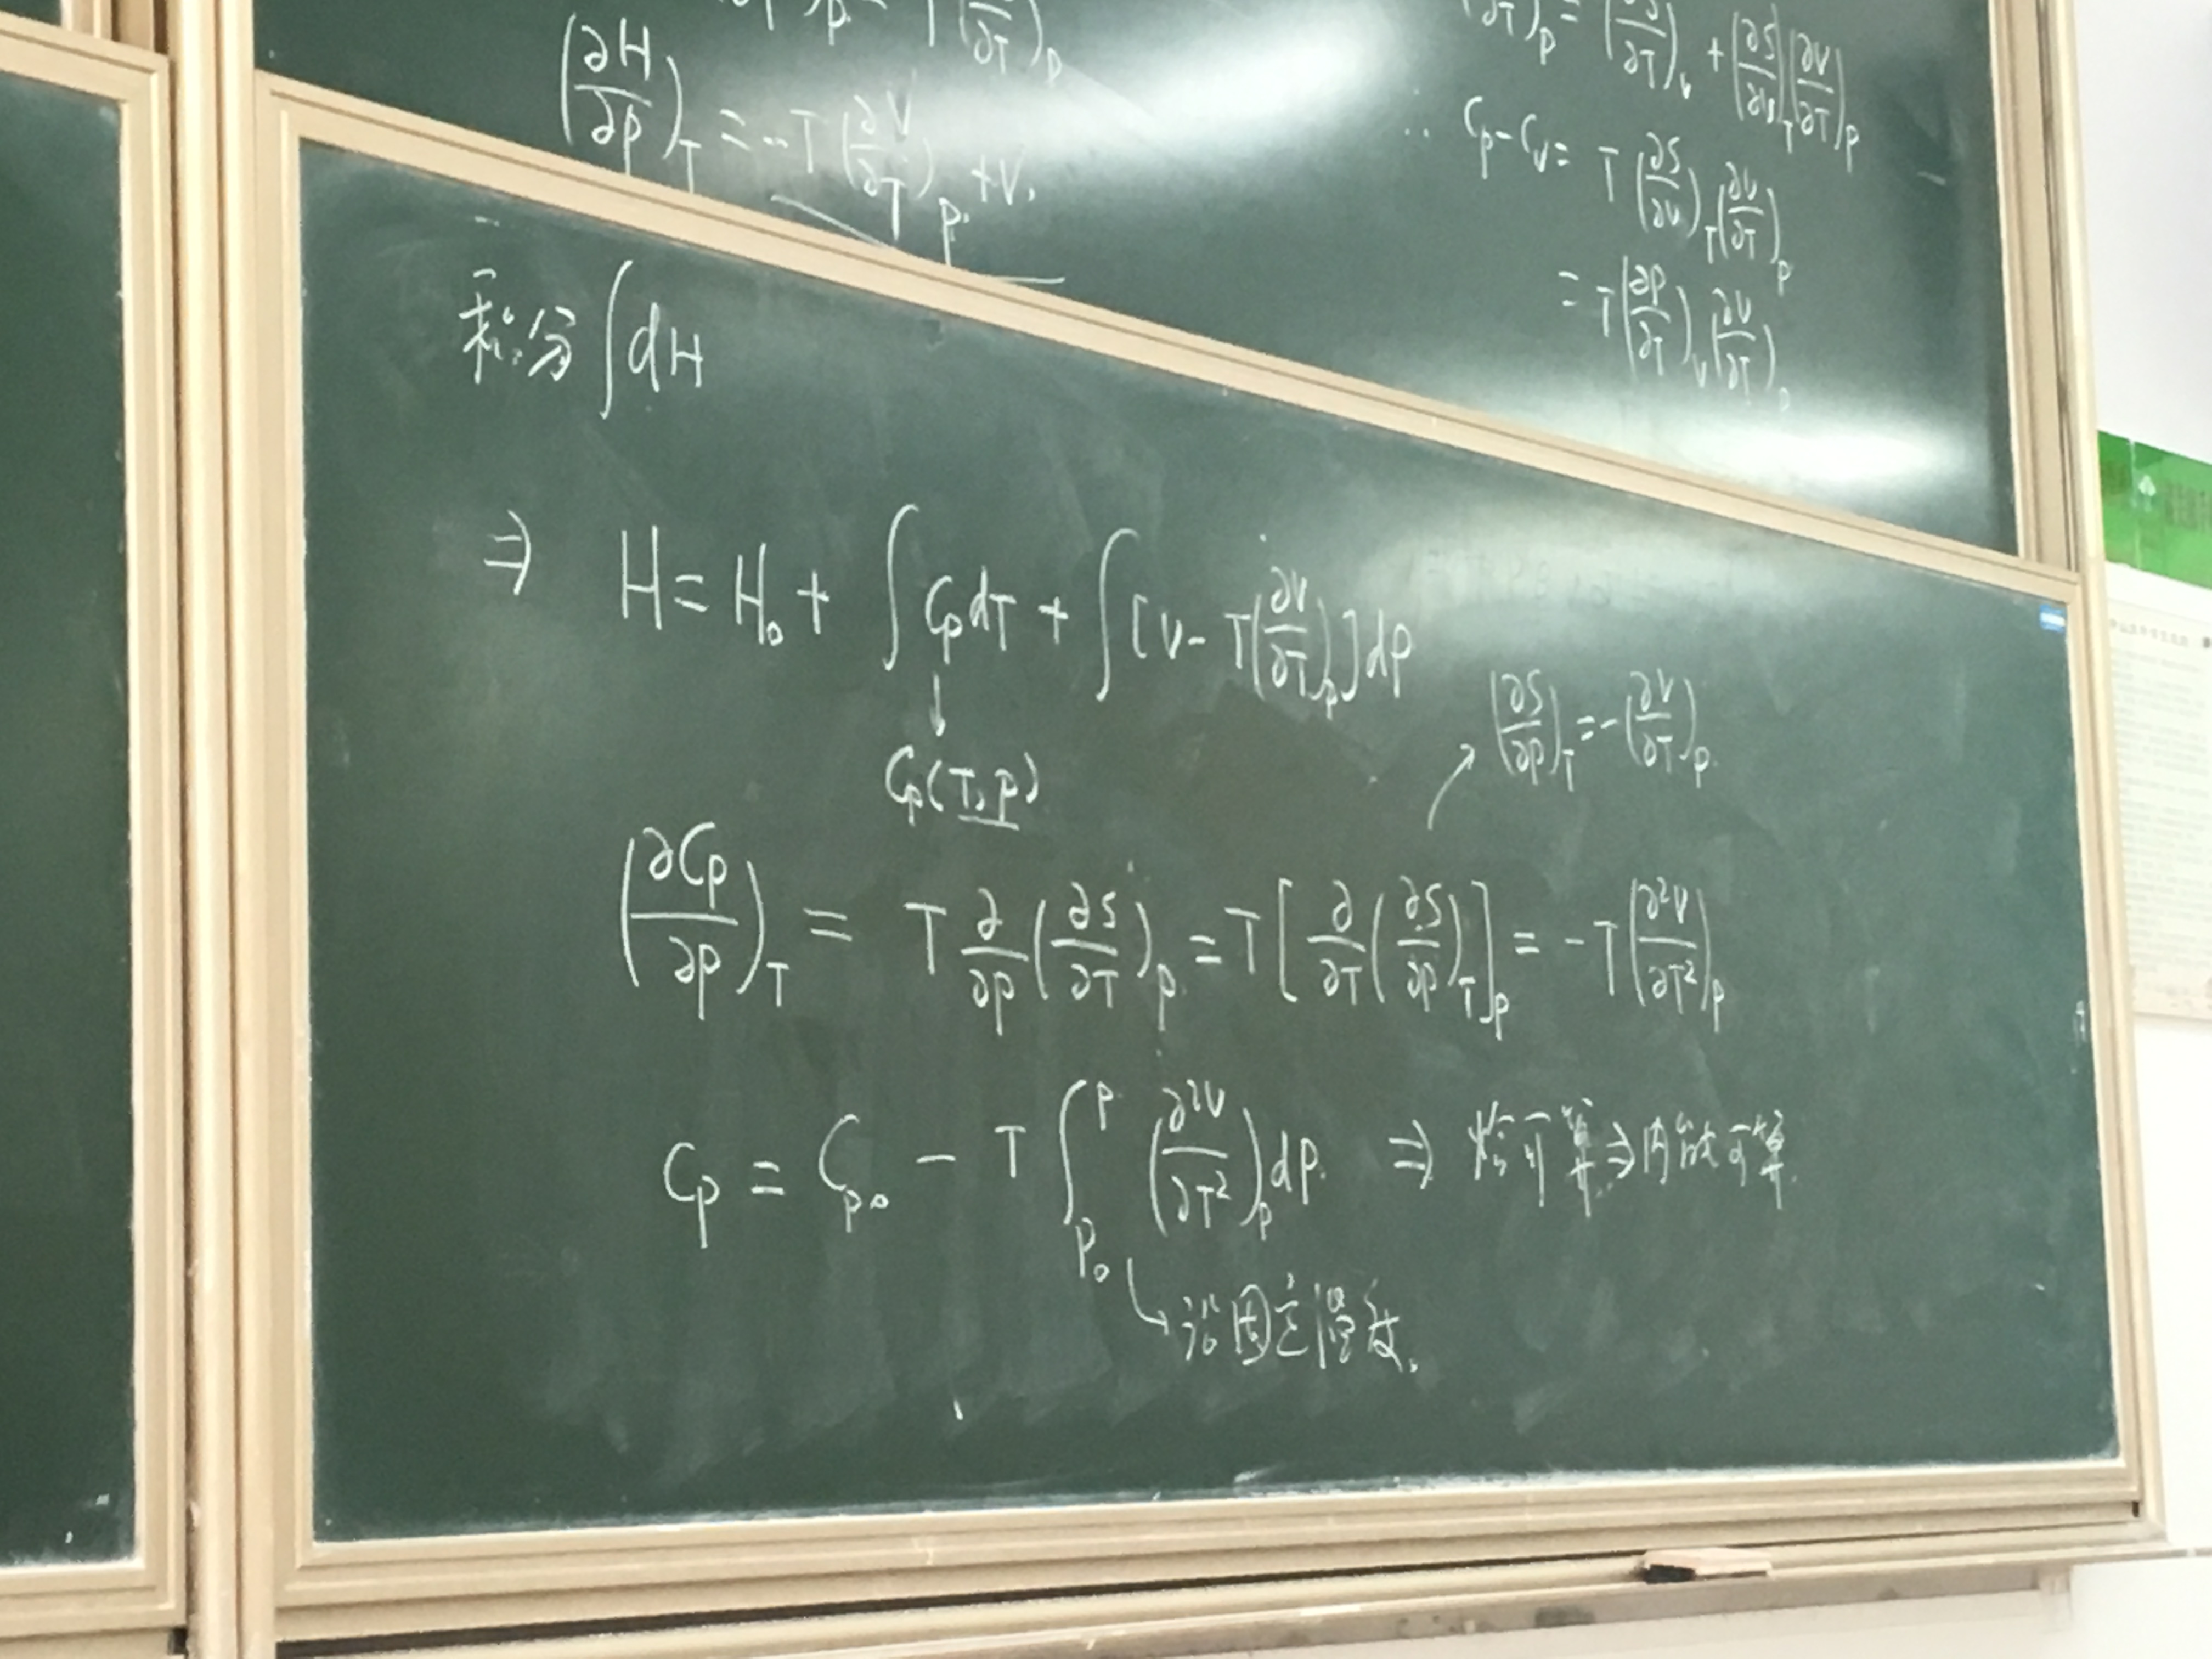 (∂H/∂p)_T = -T(∂V/∂T)_p + V.
(∂S/∂T)_V + (∂S/∂V)_T (∂V/∂T)_p
∴ Cp - Cv = T(∂S/∂V)_T (∂V/∂T)_p
= T(∂p/∂T)_V (∂V/∂T)_p
积分 ∫dH
⇒ H = H₀ + ∫Cp dT + ∫[V - T(∂V/∂T)_p]dp
↓
Cp(T, p)
↗ (∂S/∂p)_T = -(∂V/∂T)_p
(∂Cp/∂p)_T = T ∂/∂p (∂S/∂T)_p = T[∂/∂T (∂S/∂p)_T]_p = -T(∂²V/∂T²)_p
Cp = Cp₀ - T∫_{p₀}^{p} (∂²V/∂T²)_p dp. ⇒ 焓可算 ⇒ 内能可算.
沿固定